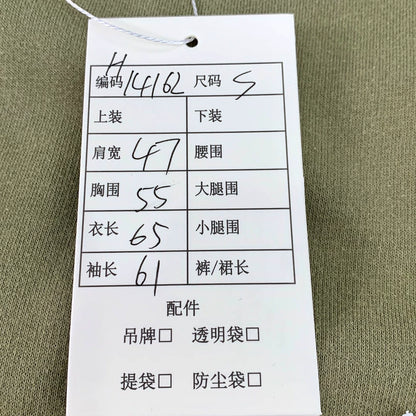 编码 H14162 尺码 S
上装 下装
肩宽 47 腰围
胸围 55 大腿围
衣长 65 小腿围
袖长 61 裤/裙长
配件
吊牌□ 透明袋□
提袋□ 防尘袋□